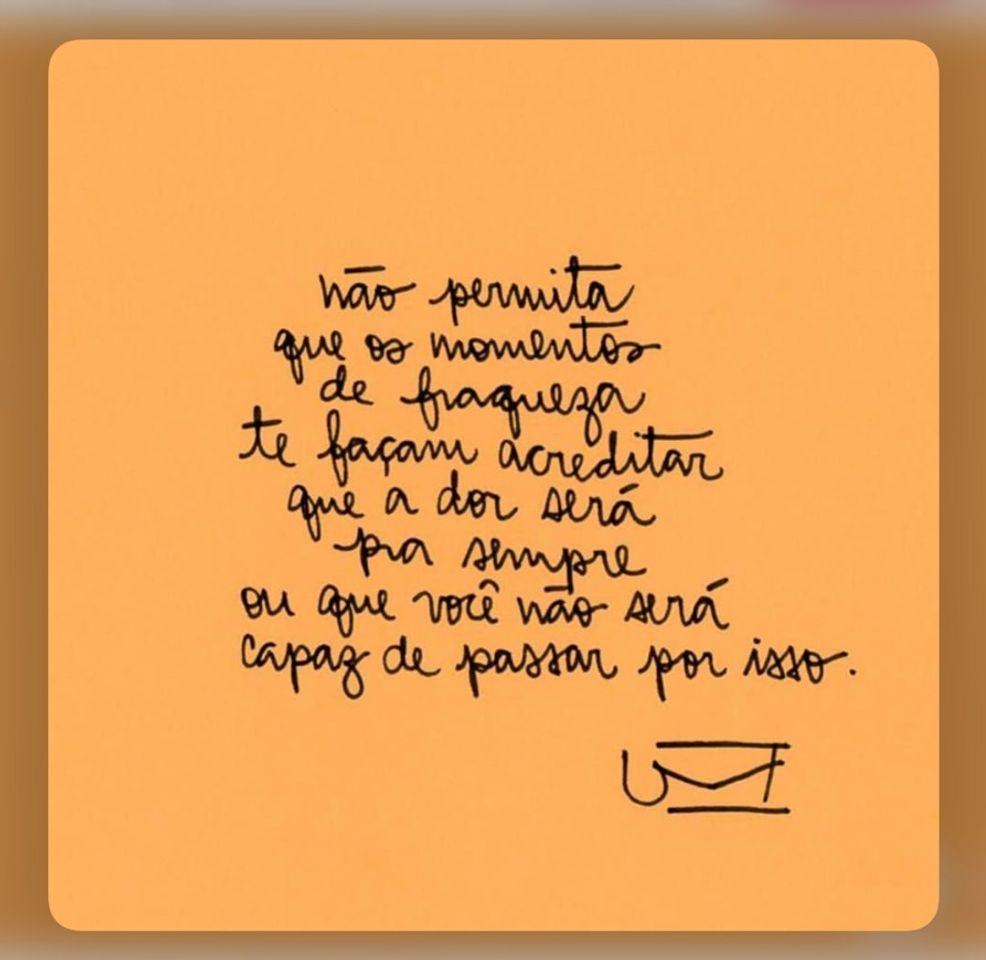 não permita
que os momentos
de fraqueza
te façam acreditar
que a dor será
pra sempre
ou que você não será
capaz de passar por isso.